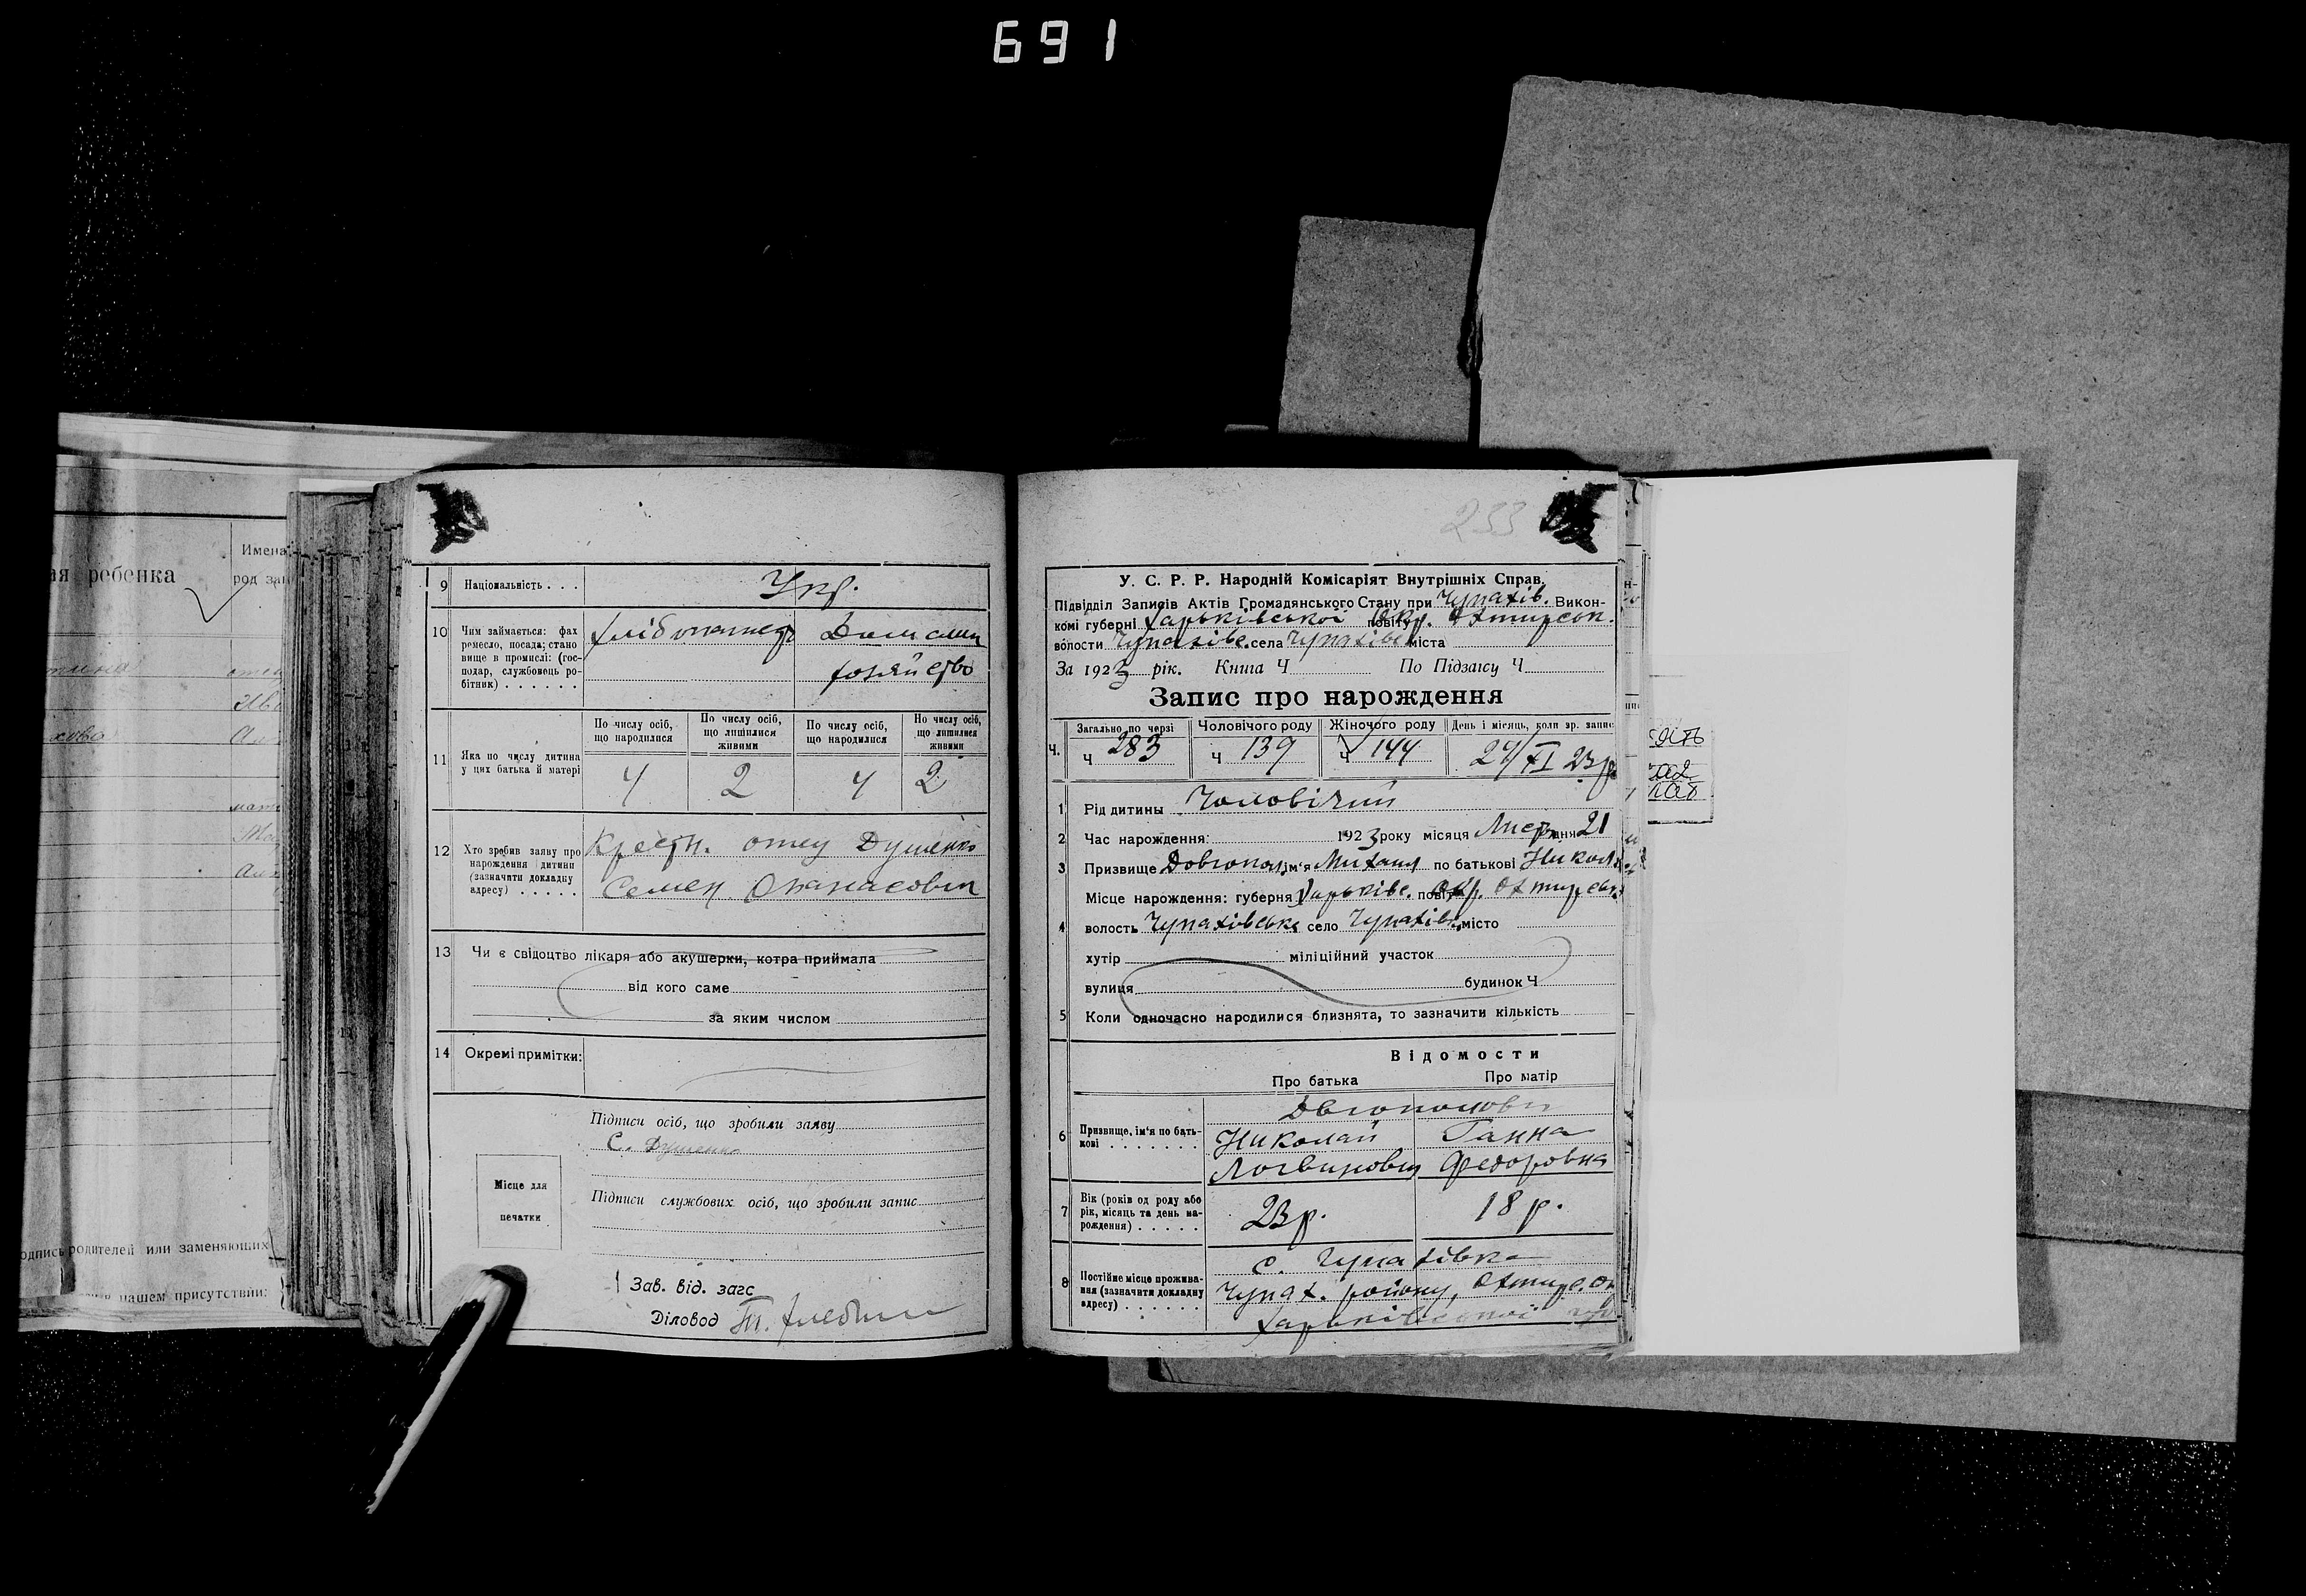 691
ая ребенка
Имена
род за
одпись родителей или заменяющих
в нашем присутствии:
9 Національність . . . Укр.
10 Чим займається: фах
ремесло, посада; стано
вище в промислі: (гос-
подар, службовець ро-
бітник) . . . . . .
Хлібопашець Домашн
хозяйство
11 Яка по числу дитина
у цих батька й матері
По числу осіб,
що народилися
По числу осіб,
що лишилися
живими
По числу осіб,
що народилися
Но числу осіб,
що лишилися
живими
4 2 4 2
12 Хто зробив заяву про
нарождення дитини
(зазначити докладну
адресу) . . . . .
Крестн. отец Душенко
Семен Опанасович
13 Чи є свідоцтво лікаря або акушерки, котра приймала
від кого саме
за яким числом
14 Окремі примітки:
Підписи осіб, що зробили заяву
С. Душенко
Місце для
печатки
Підписи службових осіб, що зробили запис
Зав. від. загс
Діловод
233
У. С. Р. Р. Народній Комісаріят Внутрішніх Справ.
Підвідділ Записів Актів Громадянського Стану при Чупахів. Викон-
комі губерні Харьківської повіту Окр. Охтирськ.
волости Чупахівс. села Чупахівк міста
За 1923 рік. Книга Ч По Підзагсу Ч
Запис про нарождення
Ч.
Загально по черзі
Ч 283
Чоловічого роду
Ч 139
Жіночого роду
Ч 144
День і місяць, коли зр. запис
24/XI 23 р
1 Рід дитини Чоловічий
2 Час нарождення: 1923 року місяця Листп дня 21
3 Призвище Довгопол ім'я Михаил по батькові Никол
Місце нарождення: губерня Харьківс. повіт Окр. Охтирськ
4 волость Чупахівська село Чупахівк місто
хутір міліційний участок
вулиця будинок Ч
5 Коли одночасно народилися близнята, то зазначити кількість
Відомости
Про батька Про матір
6 Призвище, ім'я по бать-
кові . . . . . . .
Довгополови
Николай Ганна
Логвинович Федоровна
7 Вік (років од роду або
рік, місяць та день на-
рождення) . . . . . .
23 р. 18 р.
8 Постійне місце прожива-
ння (зазначити докладну
адресу) . . . . . . .
с. Чупахівка
Чупах. району, Охтирс. Ок
Харьківської гу